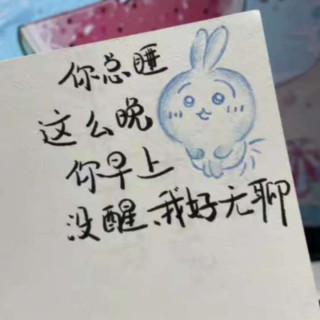 你总睡
这么晚
你早上
没醒、我好无聊